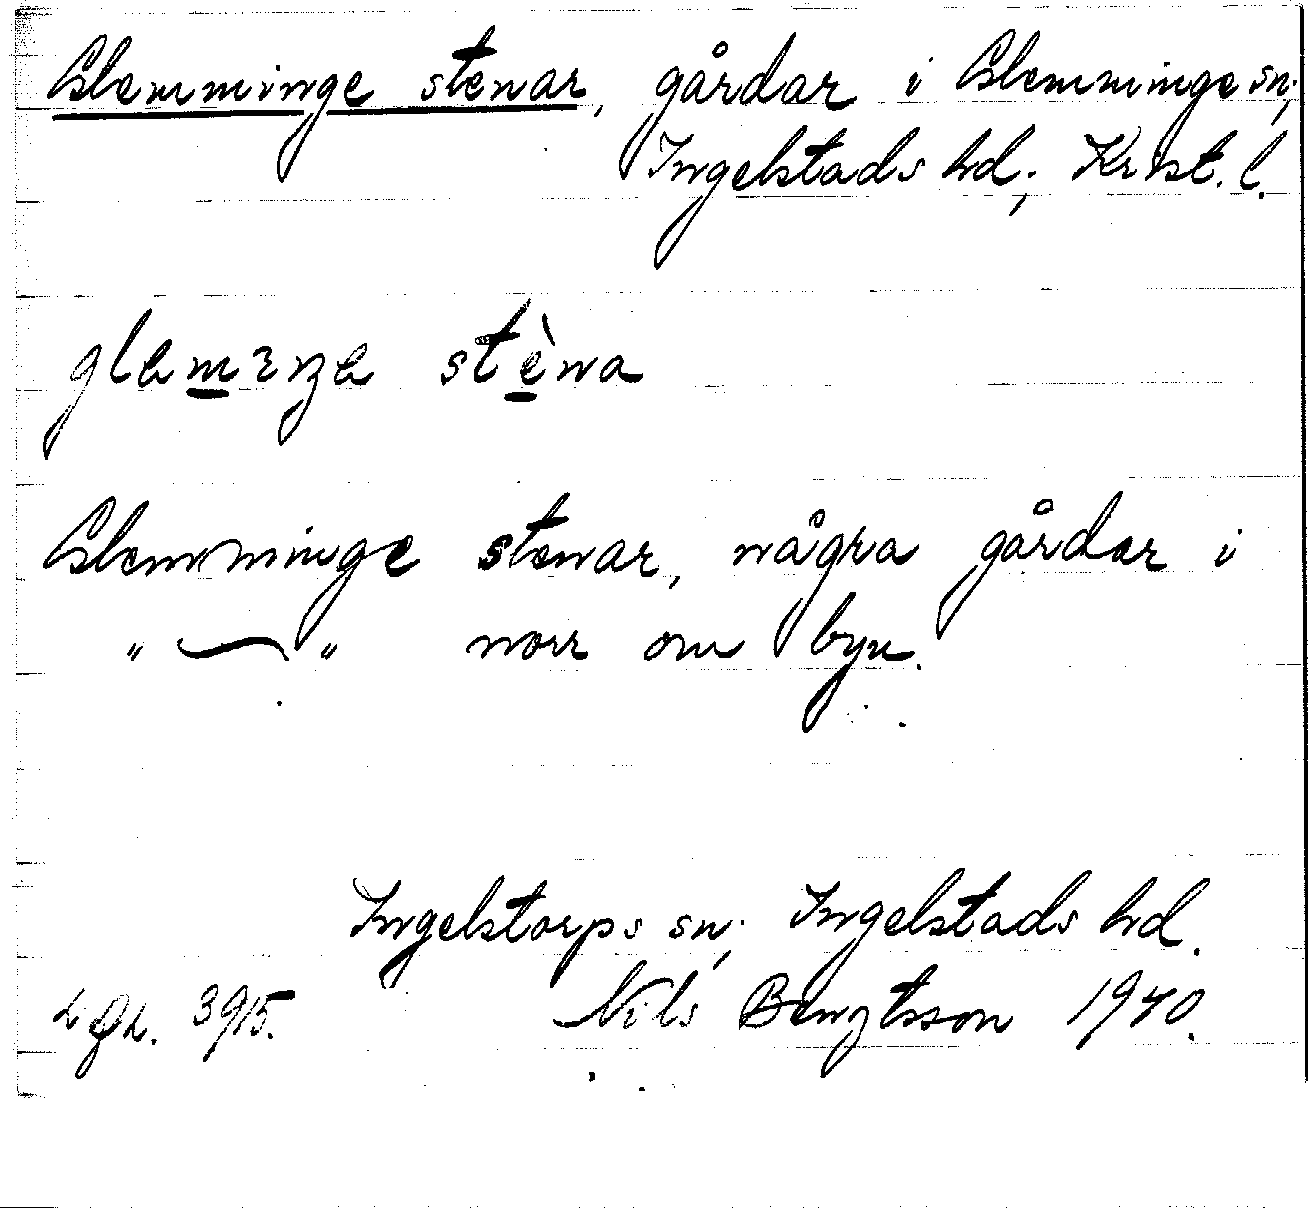 Glemminge stenar, gårdar i Glemminge sn;
Ingelstads hd; Krist. l.
stèna
Glemminge stenar, några gårdar i
" — " norr om byn.
Ingelstorps sn; Ingelstads hd.
3915. Nils Bengtsson 1940.